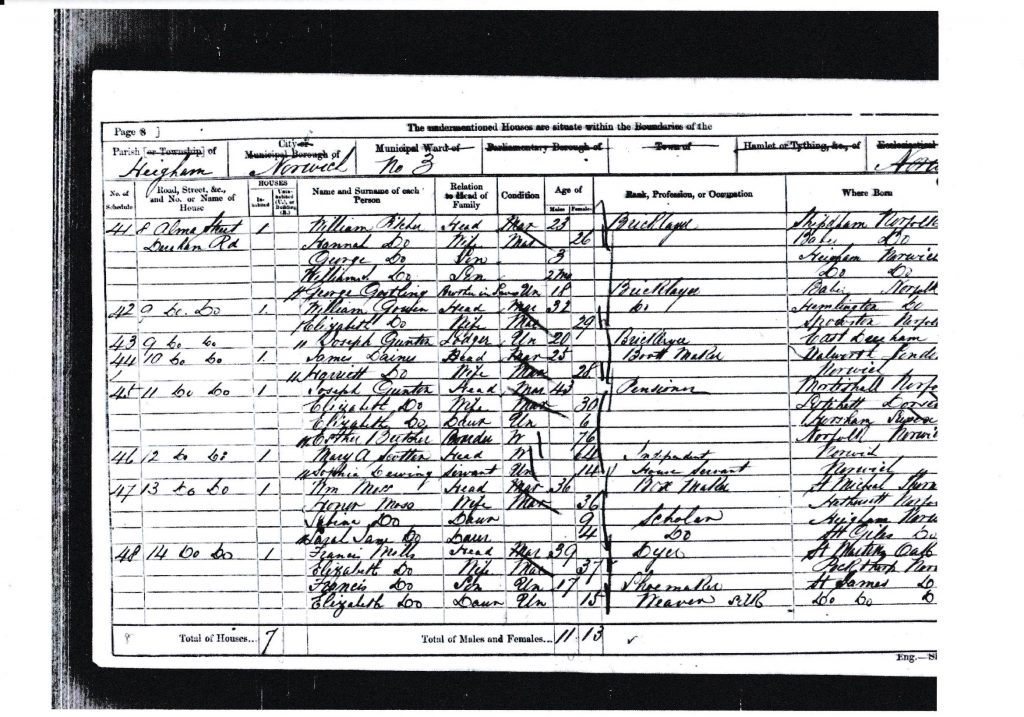 The undermentioned Houses are situate within the Boundaries of the
Page 8 ]
Parish [or Township] of Heigham
City or Municipal Borough of Norwich
Municipal Ward of No 3
Parliamentary Borough of
Town of
Hamlet or Tything, &c., of
Ecclesiastical
No. of Schedule Road, Street, &c., and No. or Name of House HOUSES In-habited Unin-habited (U.), or Building (B.) Name and Surname of each Person Relation to Head of Family Condition Age of Males Females Rank, Profession, or Occupation Where Born
41 8 Alma Street 1 William Pitcher Head Mar 23 Bricklayer Shipdham Norfolk
Dereham Rd Hannah Do Wife Mar 26 Do
George Do Son 3 Heigham Norwich
William Do Son 2 Mo Do Do
George Gostling Brother in Law Un 18 Bricklayer Norfolk
42 9 Do Do 1 William Head Mar 32 Do
Elizabeth Do Wife Mar 29 Norfo
43 9 Do Do Joseph Gunton Lodger Un 20 Bricklayer East Dereham
44 10 Do Do 1 James Daines Head Mar 25 Boot Maker Walworth
Harriett Do Wife Mar 28 Norwich
45 11 Do Do 1 Joseph Gunton Head Mar 43 Pensioner Norfo
Elizabeth Do Wife Mar 30 Lytchett Dorse
Elizabeth Do Daur Un 6
Esther Butcher W 76 Norfolk Norwi
46 12 Do Do 1 Mary A Head W 64 Independent Norwich
Sophia Servant Un 14 House Servant Norwich
47 13 Do Do 1 Wm Moss Head Mar 36 Box Maker St Michael
Honor Moss Wife Mar 36 Norfo
Sabina Do Daur 9 Scholar Heigham Norw
Sarah Jane Do Daur 4 Do St Giles Do
48 14 Do Do 1 Francis Head Mar 39 Dyer St Martin Oak
Elizabeth Do Wife Mar 37 Pockthorpe Nor
Francis Do Son Un 17 Shoemaker St James D
Elizabeth Do Daur Un 15 Weaver Silk Do Do D
8 Total of Houses... 7 Total of Males and Females... 11 13